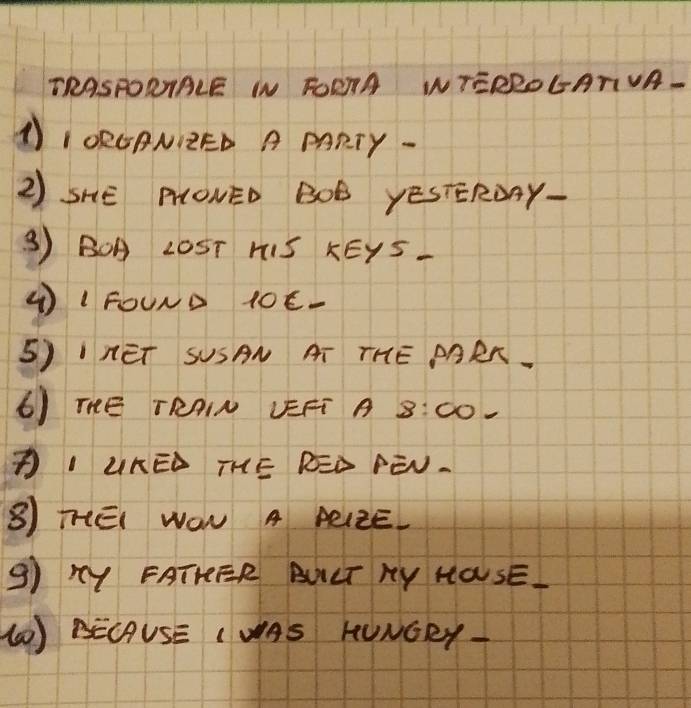 TRASFORMALE IN FORMA INTERROGATIVA-
1) I ORGANIZED A PARTY-
2) SHE PHONED BOB YESTERDAY-
3) BOB LOST HIS KEYS-
4) I FOUND 10€-
5) I MET SUSAN AT THE PARK-
6) THE TRAIN LEFT A 8:00-
7) I LIKED THE RED PEN-
8) THEI WON A PRIZE-
9) MY FATHER BUILT MY HOUSE-
10) BECAUSE I WAS HUNGRY-